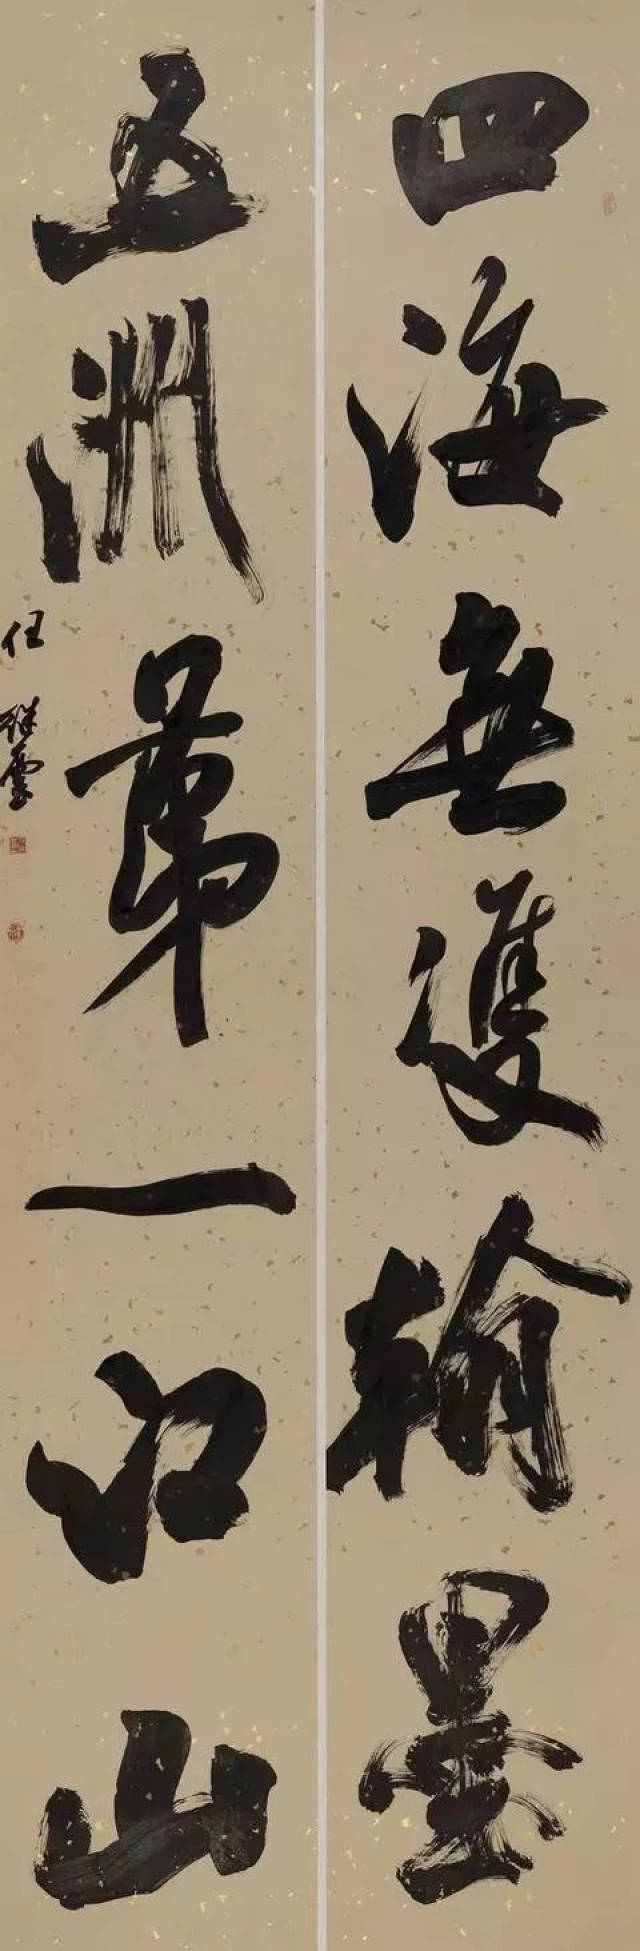 四海無雙翰墨
五洲第一江山
任继雲